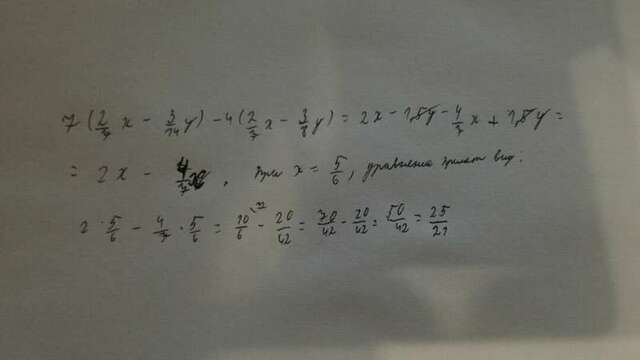 7 (2/7 x - 3/14 y) - 4 (2/7 x - 3/8 y) = 2x - 1,5y - 4/7 x + 1,5y =
= 2x - 4/7 x, При x = 5/6, уравнение примет вид:
2 · 5/6 - 4/7 · 5/6 = 10/6 - 20/42 = 70/42 - 20/42 = 50/42 = 25/21